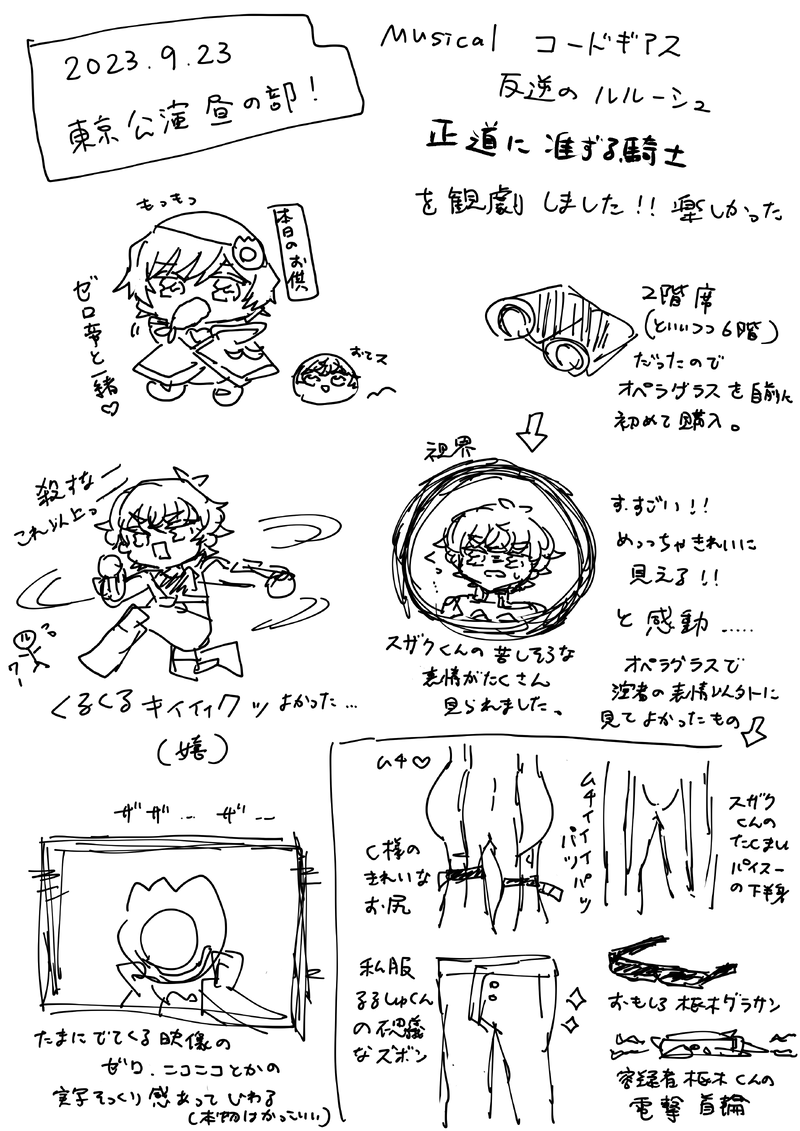 2023.9.23
東京公演 昼の部!
Musical コードギアス
反逆の ルルーシュ
正道に准ずる騎士
を観劇しました!! 楽しかった
もっもっ
本日のお供
ゼロ夢と一緒♡
おてス
2階席
(といいつつ6階)
だったので
オペラグラスを自前ん
初めて購入。
視界
す、すごい!!
めっっちゃきれいに
見える!!
と感動.....
スザクくんの苦しそうな
表情がたくさん
見られました。
オペラグラスで
演者の表情以外に
見てよかったもの
殺すな
これ以上っ
ル
くるくるキイイィクッよかった…
(嬉)
ザザ… ザ…
たまにでてくる映像の
ゼロ、ニコニコとかの
実写そっくり感あってじわる
(本物はかっこいい)
ムチ♡
C様の
きれいな
お尻
ムチィイイパツ
パツ
スザク
くんの
たくましい
パイスー
の下半身
私服
るるしゅくん
の不思議
なズボン
おもしろ枢木グラサン
容疑者枢木くんの
電撃首輪